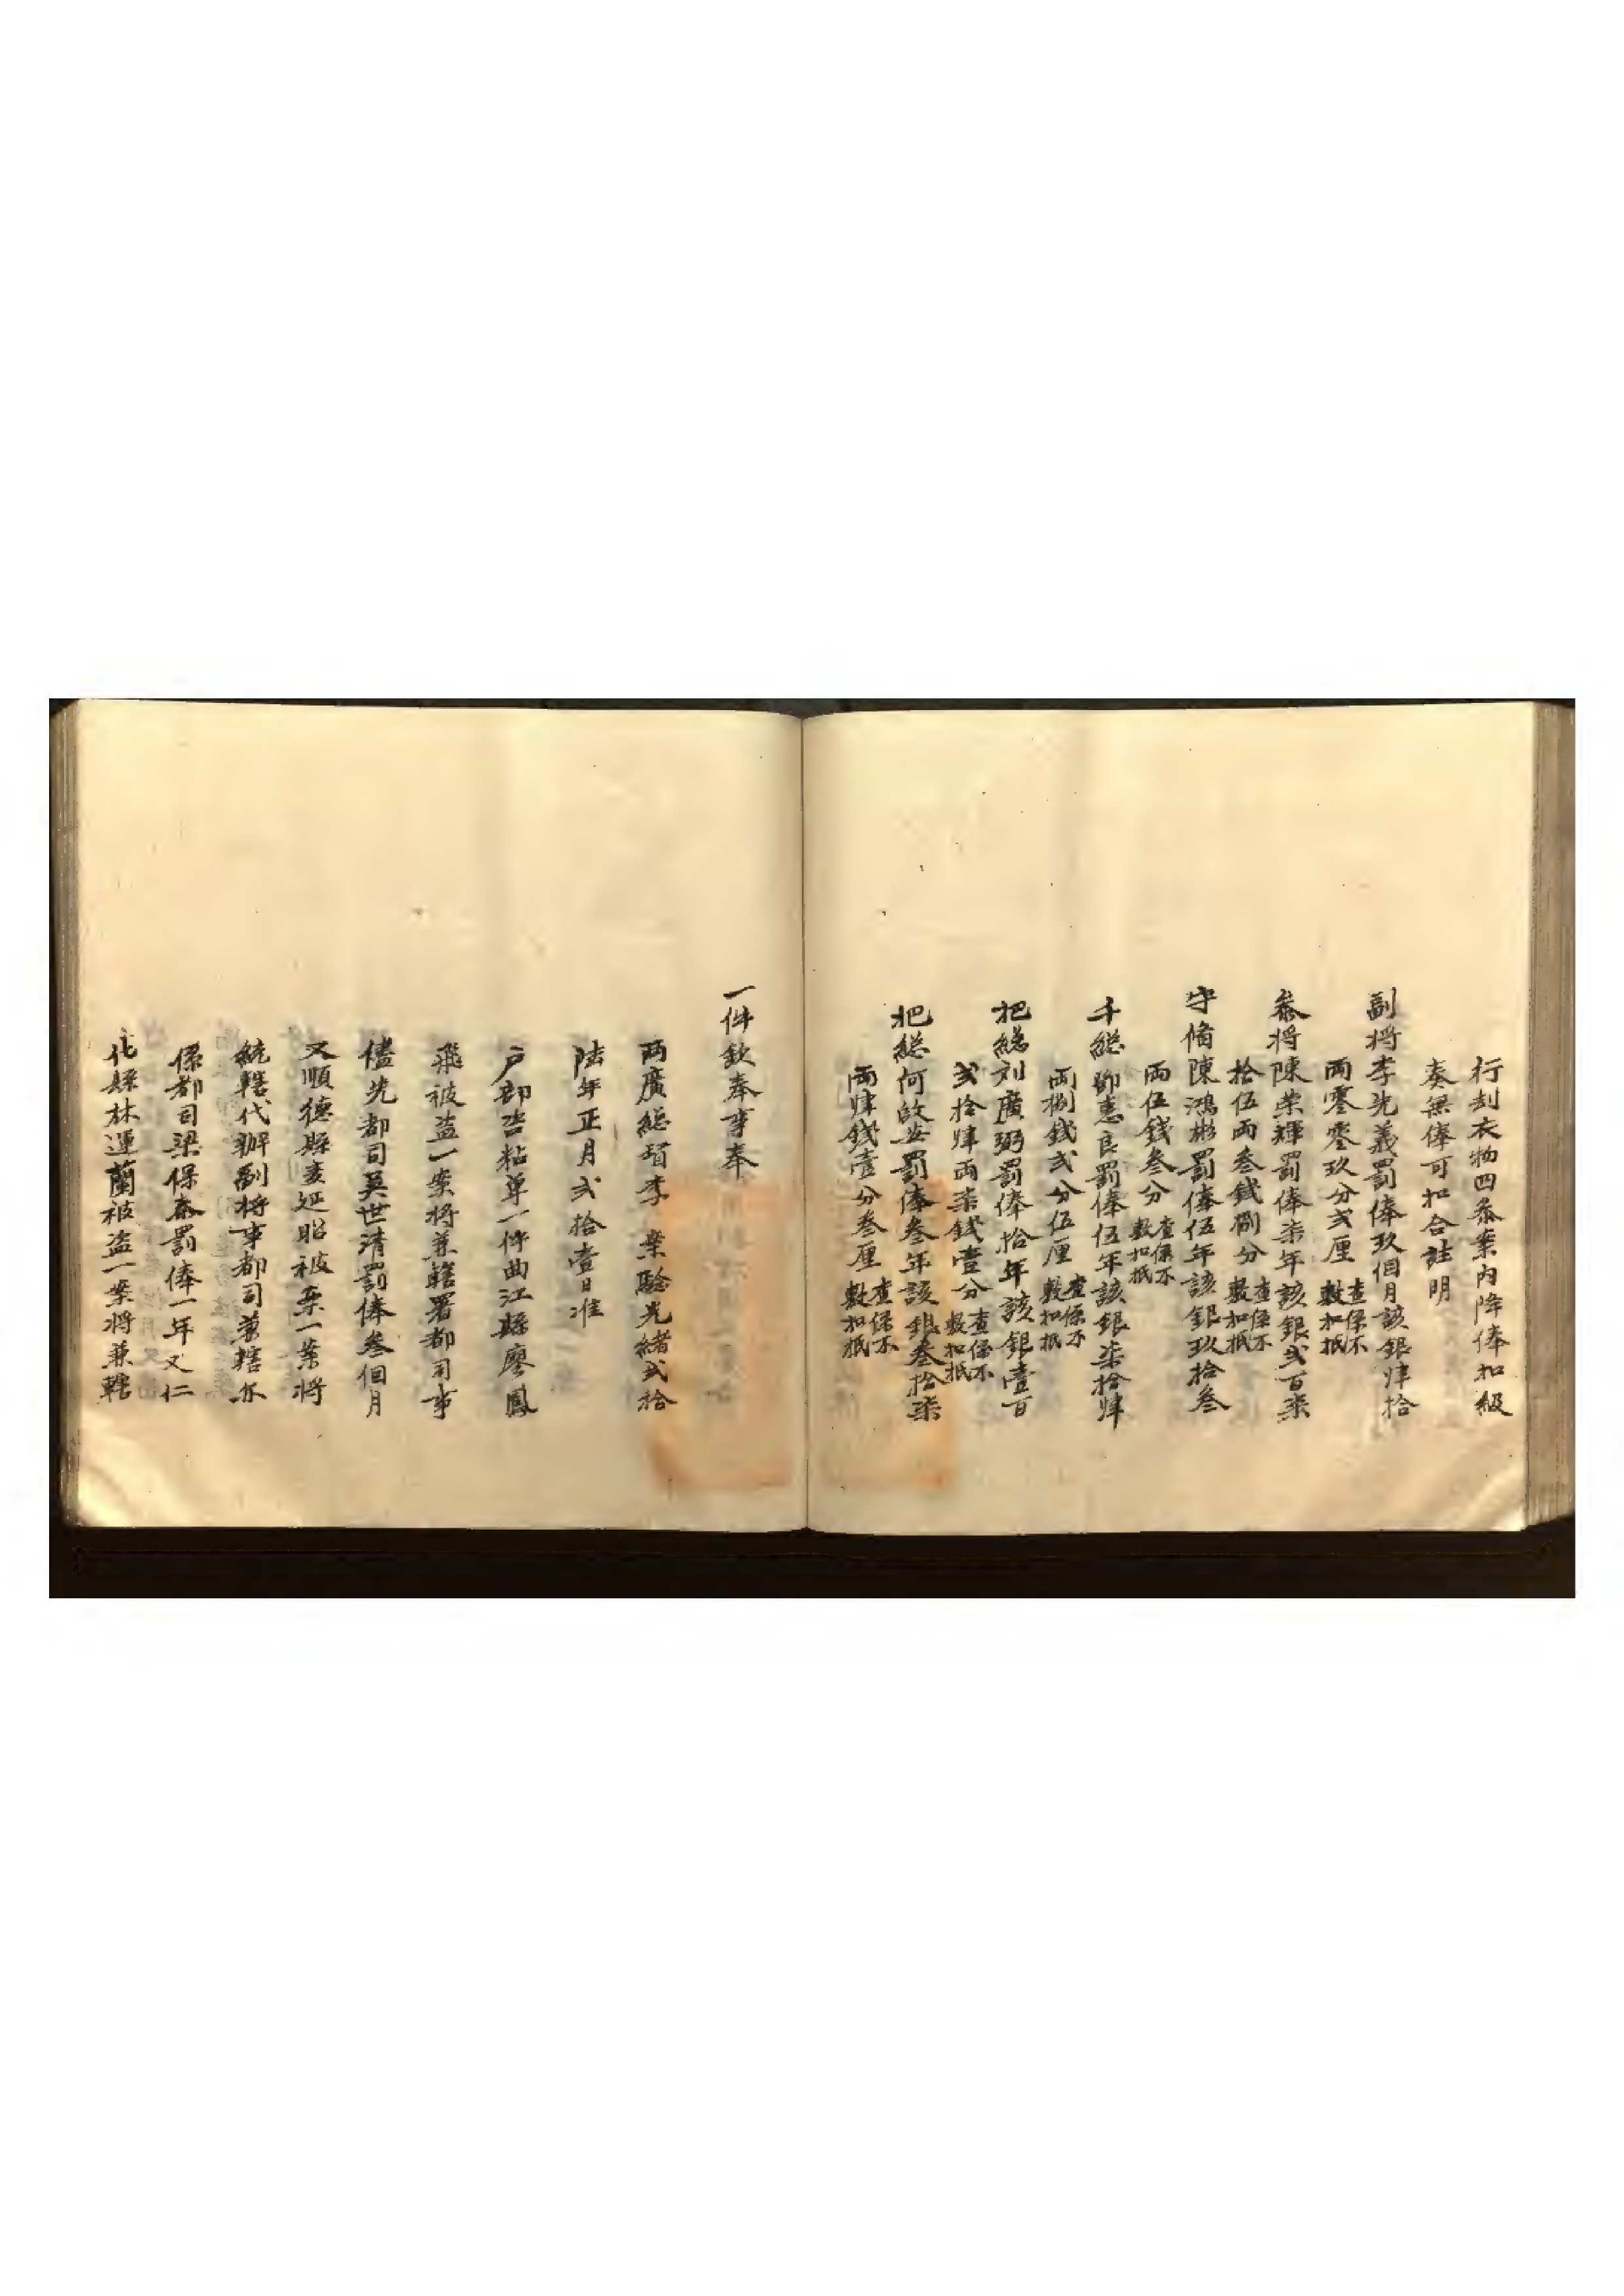 行刦衣物四叅案内降俸扣級
奏無俸可扣合註明
副将李先義罰俸玖個月該銀肆拾
兩零零玖分弍厘查係不敷扣抵
叅将陳荣輝罰俸柒年該銀弍百柒
拾伍兩叁錢捌分查係不敷扣抵
守俻陳鴻彬罰俸伍年該銀玖拾叁
兩伍錢叁分查係不敷扣抵
千総鄧惠良罰俸伍年該銀柒拾肆
兩捌錢弍分伍厘查係不敷扣抵
把総刘廣弼罰俸拾年該銀壹百
弍拾肆兩柒錢壹分查係不敷扣抵
把総何啟安罰俸叁年該銀叁拾柒
兩肆錢壹分叁厘查係不敷扣抵
一件欽奉事奉
兩廣総督李 案驗光緒弍拾
陸年正月弍拾壹日准
户部咨粘单一件曲江縣廖鳳
飛被盗一案将兼轄署都司事
儘先都司吴世清罰俸叁個月
又順德縣麦延昭被案一案将
統轄代辦副将事都司兼轄亦
係都司梁保泰罰俸一年又仁
化縣林運蘭被盗一案将兼轄